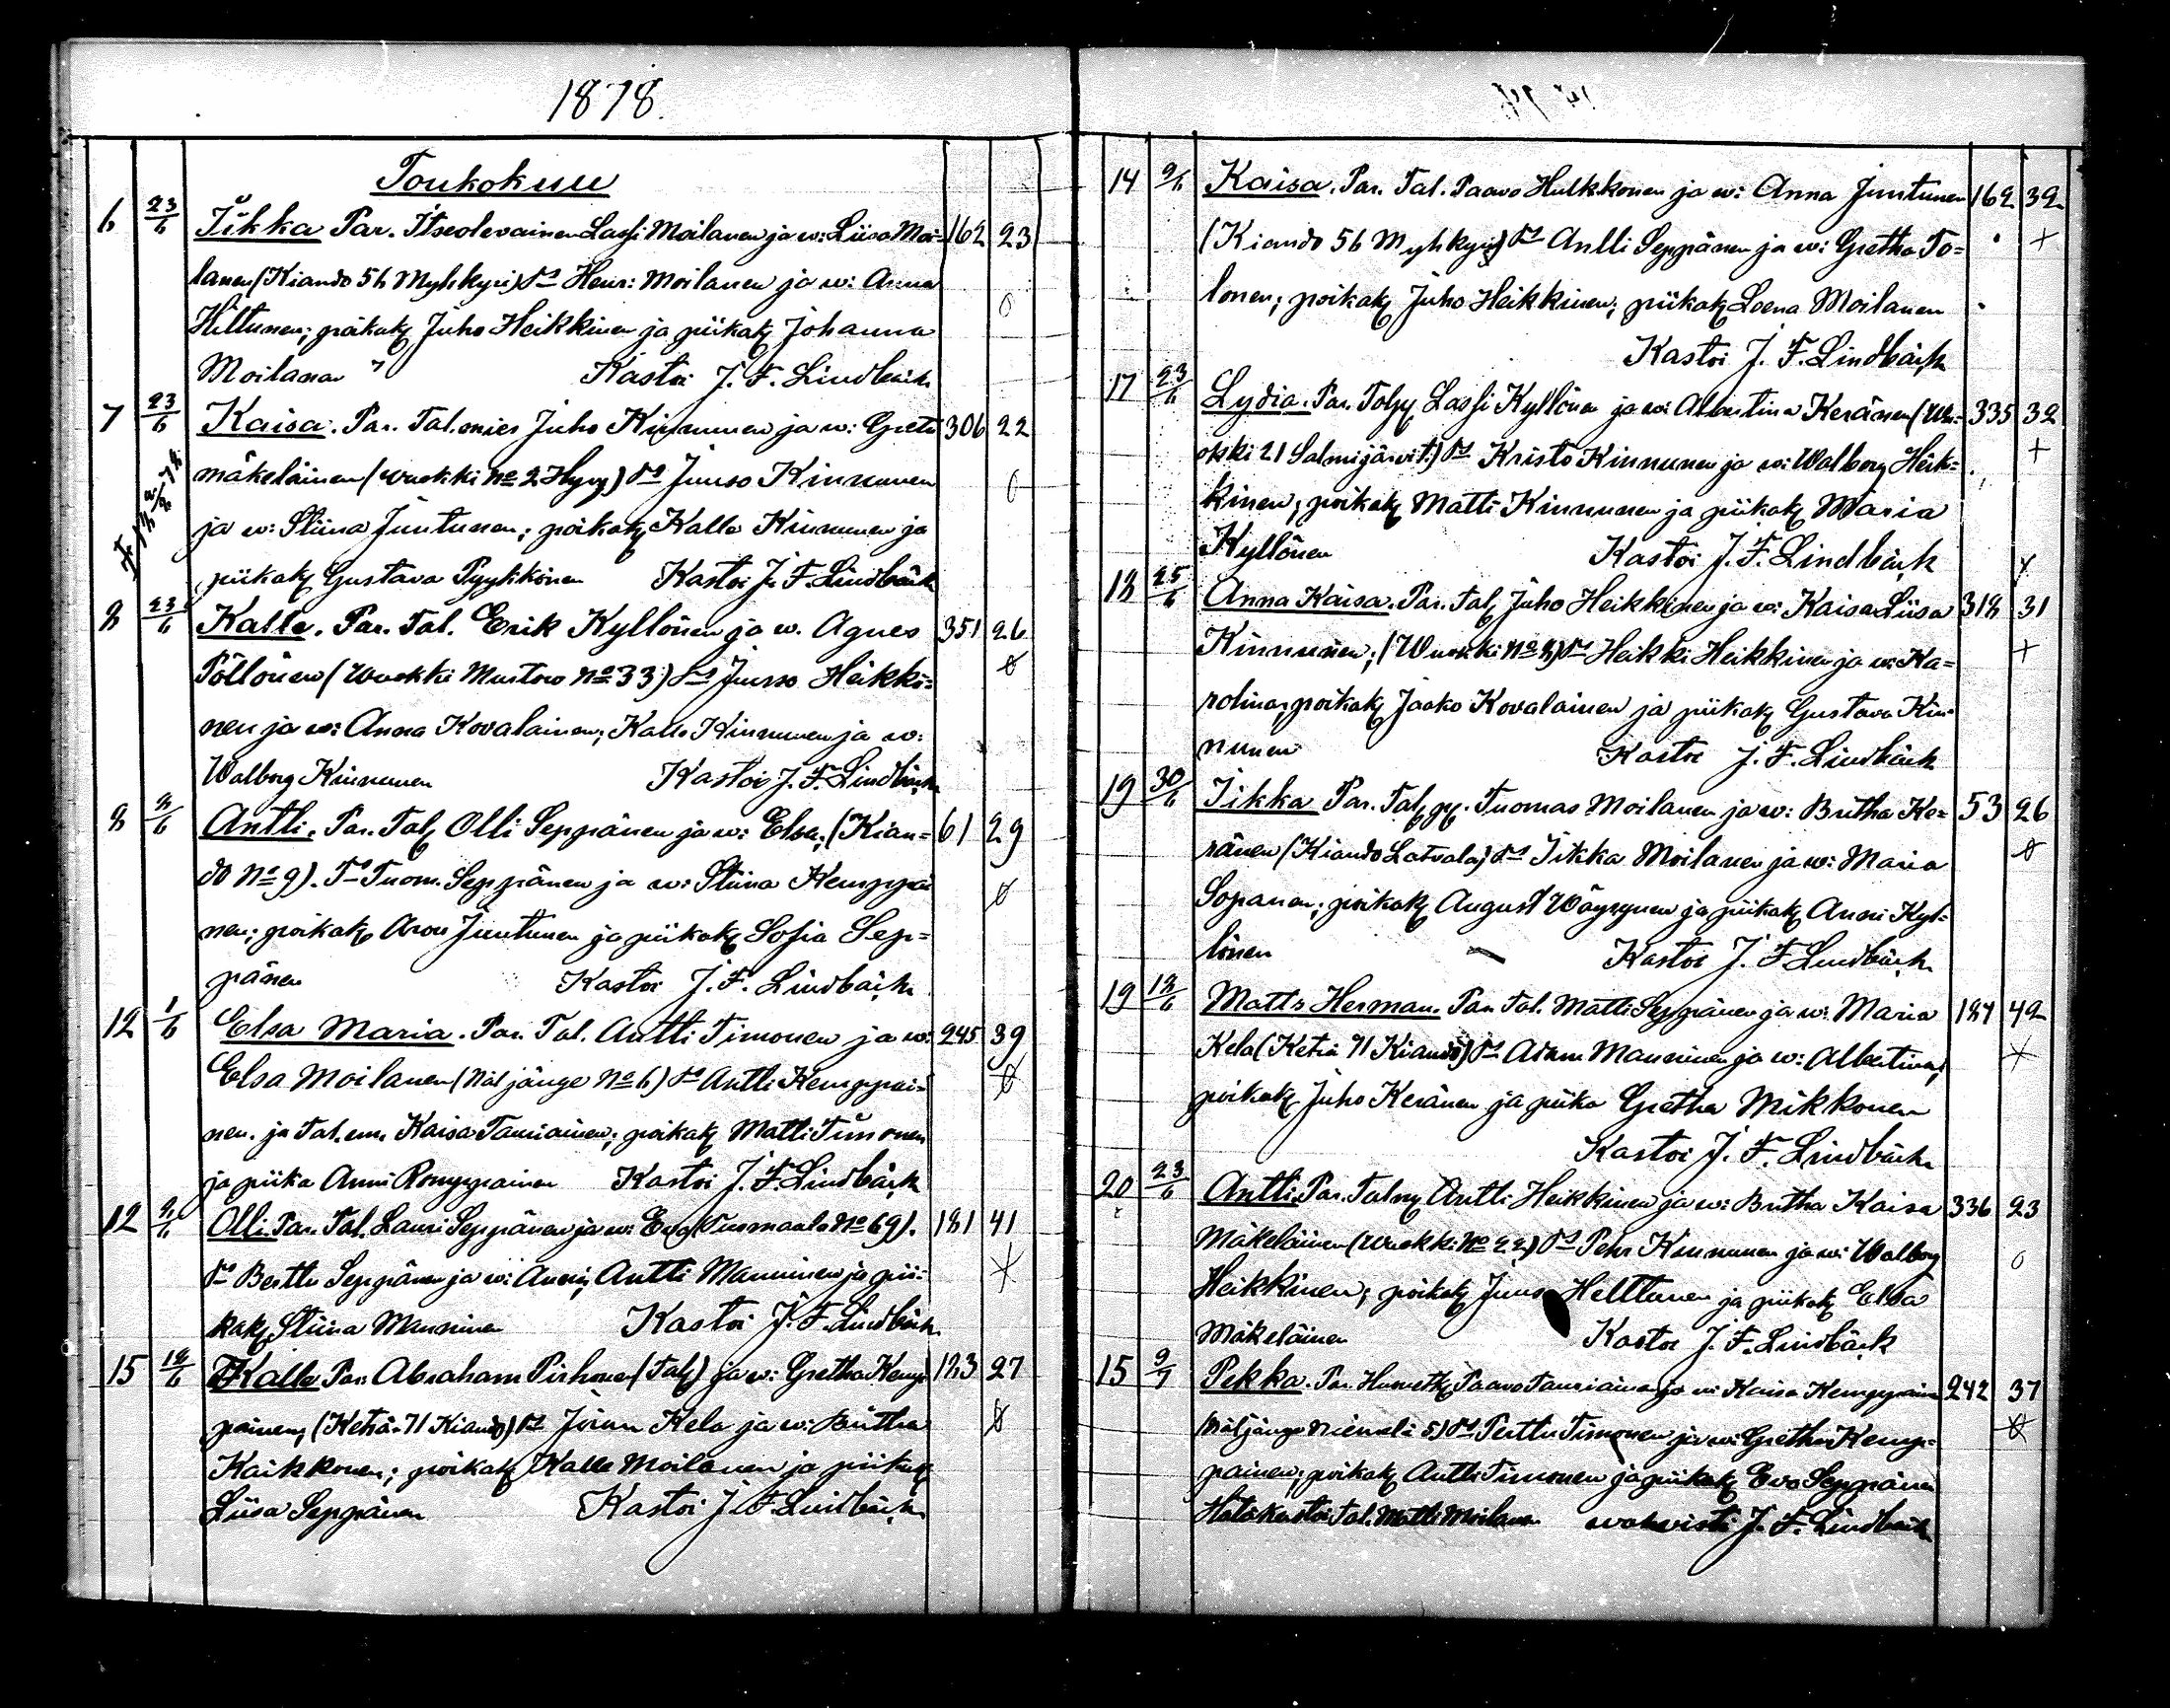 1878.
Toukokuu
6 23/6 Iikka Par. Itseolevainen Lassi Moilanen ja w: Liisa Moi= 162 23
lanen (Kiando 56 Myhkyri) Ts Henr: Moilanen ja w: Anna
Hiltunen; poikak Juho Heikkinen ja piikak Johanna
Moilanen Kastoi J. F. Lindbäck
7 23/6 Kaisa. Par. Tal.mies Juho Kinnunen ja w: Greta 306 22
mäkeläinen (wuokki No 2 Hyry) Ts Juuso Kinnunen
ja w: Stiina Juntunen; poikak Kalle Kinnunen ja
piikak Gustava Pyykkönen Kastoi J. F. Lindbäck
8 23/6 Kalle. Par. Tal. Erik Kyllönen ja w. Agnes 351 26
Pöllönen (Wuokki Mustow No 33) Ts Juuso Heikki=
nen ja w: Anna Kovalainen; Kalle Kinnunen ja w:
Walborg Kinnunen Kastoi J. F. Lindbäck
8 Antti. Par. Tal Olli Seppänen ja w: Elsa; (Kian= 61 29
do No 9). Ts Tuom. Seppänen ja w: Stiina Kemppai
nen; poikak Aron Juntunen ja piikak Sofia Sep=
pänen Kastoi J. F. Lindbäck
12 1/6 Elsa Maria. Par. Tal. Antti Timonen ja w: 245 39
Elsa Moilanen (Näljänge No 6) Ts Antti Kemppai=
nen. ja tal.em. Kaisa Tauriainen; poikak Matti Timonen
ja piika Anni Romppainen Kastoi J. F. Lindbäck
12 Olli. Par. Tal. Lauri Seppänen ja w: Eva No 69). 181 41
Ts Berttu Seppänen ja w: Anni; Antti Manninen ja pii=
kak Stiina Manninen Kastoi J. F. Lindbäck
15 Kalle Par: Abraham Pirhonen (Tal) ja w: Gretha Kemp= 183 27
painen; (Ketiä 71 Kiando) Ts Jöran Kela ja w: Britha
Kaikkonen; poikak Kalle Moilanen ja piikak
Liisa Seppänen Kastoi J. F. Lindbäck
14 9/6 Kaisa. Par. Tal. Paavo Hulkkonen ja w: Anna Juntunen 162 32
(Kiando 56 Myhkyri) Ts Antti Seppänen ja w: Gretha To=
lonen; poikak Juho Heikkinen; piikak Leena Moilanen
Kastoi J. F. Lindbäck
17 23/6 Lydia. Par. Lassi Kyllönen ja w: Albertina Keränen (Wu= 335 32
okki 21 Salmijärvi t.) Ts Kristo Kinnunen ja w: Walborg Heik=
kinen; poikak Matti Kinnunen ja piikak Maria
Kyllönen Kastoi J. F. Lindbäck
18 25/6 Anna Kaisa. Par. tal Juho Heikkinen ja w: Kaisa Liisa 318 31
Kinnunen; (Wuokki No 8) Ts Heikki Heikkinen ja w: Ka=
rolina; poikak Jaako Kovalainen ja piikak Gustava Kin=
nunen Kastoi J. F. Lindbäck
19 30/6 Iikka Par. Tal. Tuomas Moilanen ja w: Britha Ke= 53 26
ränen (Kiando Latvala) Ts Iikka Moilanen ja w: Maria
Sopanen; poikak August Wäyrynen ja piikak Anni Kyl=
lönen Kastoi J. F. Lindbäck
19 Matts Herman. Par. Tal. Matti Seppänen ja w: Maria 184 42
Kela (Ketiä 71 Kiando) Ts Adam Manninen ja w: Albertina;
poikak Juho Keränen ja piika Gretha Mikkonen
Kastoi J. F. Lindbäck
20 23/6 Antti. Par. Antti Heikkinen ja w: Britha Kaisa 336 23
Mäkeläinen (Wuokki No 22) Ts Pehr Kinnunen ja w: Walborg
Heikkinen; poikak Juuso Helttunen ja piikak Elsa
Mäkeläinen Kastoi J. F. Lindbäck
15 9/7 Pekka. Par. Paavo Tauriainen ja w: Kaisa Kemppainen 242 37
(Näljänge Niemelä 5) Ts Perttu Timonen ja w: Gretha Kemp=
painen; poikak Antti Timonen ja piikak Eva Seppänen
Hätäkastoi Tal. Matti Moilanen wahvisti J. F. Lindbäck